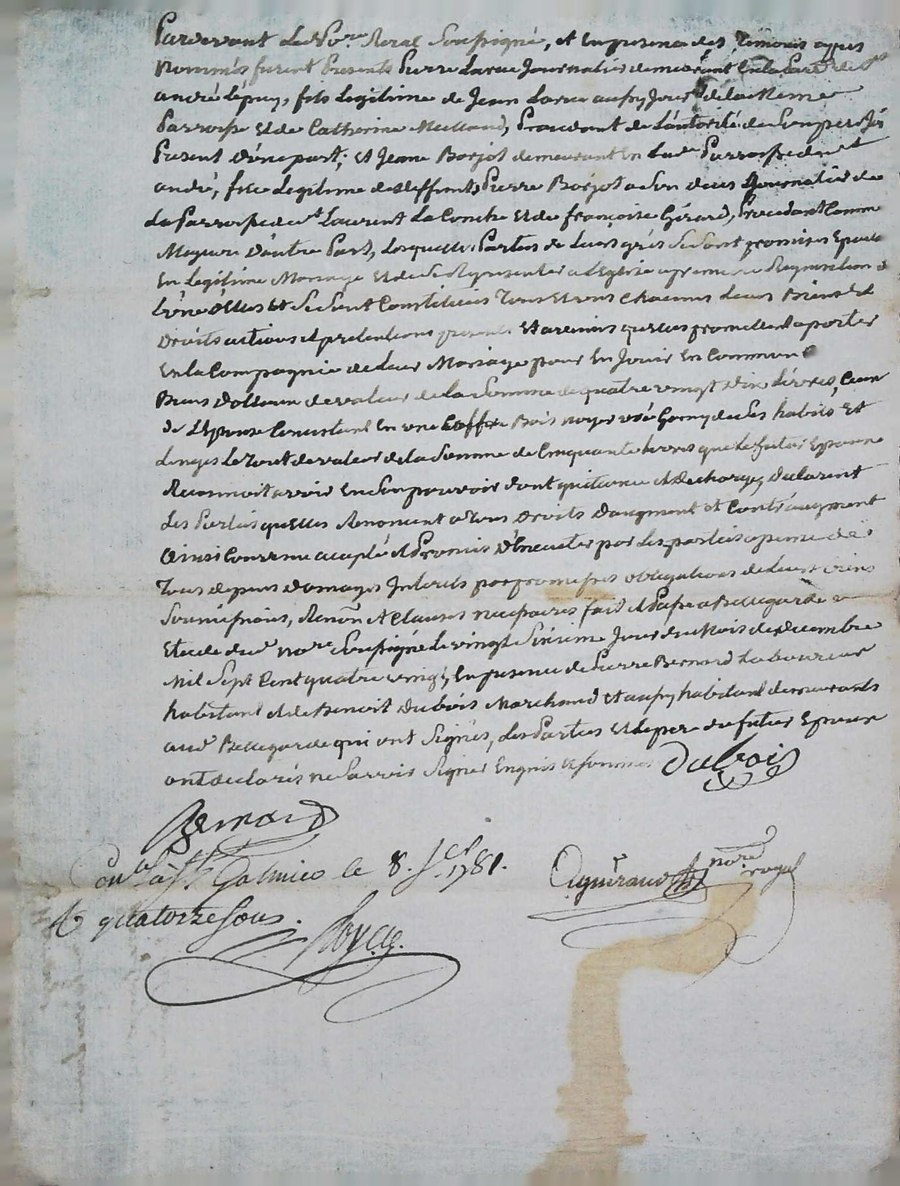 Pardevant Le No.re Royal Soussigné, et En presence des Temoins apres
Nommés furent Presents Pierre Larue Journalier demeurant En la Par.se de S.t
andré Lepuy, fils Legitime de Jean Larue aussy Jour.er de la Meme
Parroisse Et de Catherine Meilland, Procedant de Lautorité de Son pere Jcy
Present D'une part; et Jeane Borjot demeurant En Lad.e Parroisse de S.t
andré, fille Legitime de deffunt Pierre Borjot a Son deces Journalier de
La Parroisse de S.t Laurent La Conche Et de françoise Gérard, Procedant Comme
Majeure D'autre Part, Lesquelles Parties de Leurs grés Se Sont promises Epouser
En Legitime Mariage Et de Se Representer a L'eglise a premiere Requisition de
L'une d'elles Et Se Sont Constitués Tous Et uns Chacuns Leurs Biens Et
Droits actions et pretentions presents Et avenirs quelles promettent aporter
En la Compagnie de Leur Mariage pour En Jouir En Commun
Biens de valeur de la Somme de quatre vingt dix Livres, Ceux
de L'Epouse Consistant En une Coffre Bois noyer usé Garny de Ses habits Et
Linges Le Tout de valeur de la Somme de Cinquante Livres que Le futur Epoux
Reconnoit avoir En Son pouvoir dont quittance et decharge, declarent
Les Parties quelles Renoncent a Tous Droits D'augment et Contr'augment
Ainsi Convenu accepté et Promis D'executer par Les parties a peine de
Tous depens Domages Interets par promesses obligations de Leurs biens
Soumissions, Renon. et Clauses necessaires fait et Passé a Bellegarde
Etude du d. no.re Soussigné Le vingt Sixieme Jour du Mois de Decembre
Mil Sept Cent quatre vingt, En presence de Pierre Bernard Laboureur
habitant et de Benoit Dubois Marchand Et aussy habitant demeurants
aud. Bellegarde qui ont Signés, Les Parties Et Le pere du futur Epoux
ont declarés ne Savoir Signer Enquis et sommés Dubois
Bernard
Con.lé à S.t Galmier le 8. J.er 1781.
R quatorze sous.
Aguiraud no.re royal